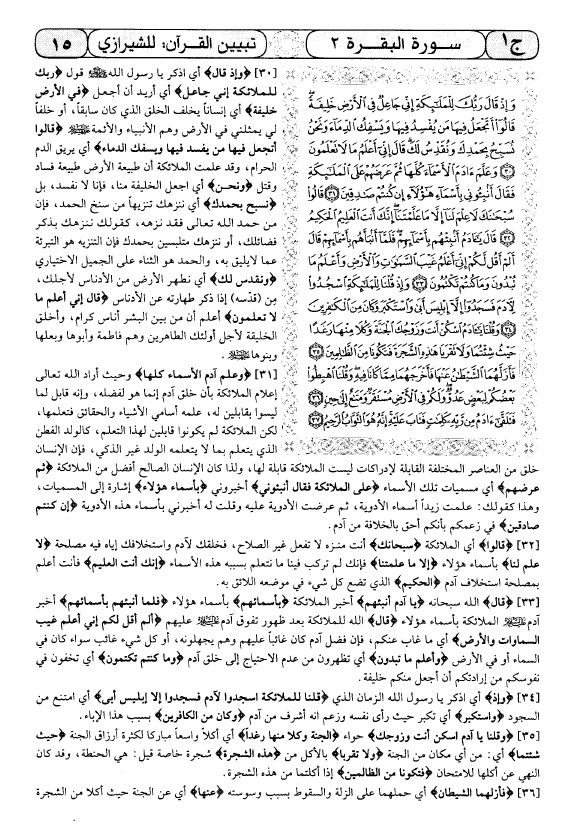 ج١
سورة البقرة ٢
تبيين القرآن: للشيرازي
١٥
وَإِذْ قَالَ رَبُّكَ لِلْمَلَٰٓئِكَةِ إِنِّي جَاعِلٌ فِي ٱلْأَرْضِ خَلِيفَةً
قَالُوٓا۟ أَتَجْعَلُ فِيهَا مَن يُفْسِدُ فِيهَا وَيَسْفِكُ ٱلدِّمَآءَ وَنَحْنُ
نُسَبِّحُ بِحَمْدِكَ وَنُقَدِّسُ لَكَ قَالَ إِنِّيٓ أَعْلَمُ مَا لَا تَعْلَمُونَ
﴿٣٠﴾ وَعَلَّمَ ءَادَمَ ٱلْأَسْمَآءَ كُلَّهَا ثُمَّ عَرَضَهُمْ عَلَى ٱلْمَلَٰٓئِكَةِ
فَقَالَ أَنۢبِـُٔونِي بِأَسْمَآءِ هَٰٓؤُلَآءِ إِن كُنتُمْ صَٰدِقِينَ ﴿٣١﴾ قَالُوا۟
سُبْحَٰنَكَ لَا عِلْمَ لَنَآ إِلَّا مَا عَلَّمْتَنَآ إِنَّكَ أَنتَ ٱلْعَلِيمُ ٱلْحَكِيمُ
﴿٣٢﴾ قَالَ يَٰٓـَٔادَمُ أَنۢبِئْهُم بِأَسْمَآئِهِمْ فَلَمَّآ أَنۢبَأَهُم بِأَسْمَآئِهِمْ قَالَ
أَلَمْ أَقُل لَّكُمْ إِنِّيٓ أَعْلَمُ غَيْبَ ٱلسَّمَٰوَٰتِ وَٱلْأَرْضِ وَأَعْلَمُ مَا
تُبْدُونَ وَمَا كُنتُمْ تَكْتُمُونَ ﴿٣٣﴾ وَإِذْ قُلْنَا لِلْمَلَٰٓئِكَةِ ٱسْجُدُوا۟
لِـَٔادَمَ فَسَجَدُوٓا۟ إِلَّآ إِبْلِيسَ أَبَىٰ وَٱسْتَكْبَرَ وَكَانَ مِنَ ٱلْكَٰفِرِينَ
﴿٣٤﴾ وَقُلْنَا يَٰٓـَٔادَمُ ٱسْكُنْ أَنتَ وَزَوْجُكَ ٱلْجَنَّةَ وَكُلَا مِنْهَا رَغَدًا
حَيْثُ شِئْتُمَا وَلَا تَقْرَبَا هَٰذِهِ ٱلشَّجَرَةَ فَتَكُونَا مِنَ ٱلظَّٰلِمِينَ ﴿٣٥﴾
فَأَزَلَّهُمَا ٱلشَّيْطَٰنُ عَنْهَا فَأَخْرَجَهُمَا مِمَّا كَانَا فِيهِ وَقُلْنَا ٱهْبِطُوا۟
بَعْضُكُمْ لِبَعْضٍ عَدُوٌّ وَلَكُمْ فِي ٱلْأَرْضِ مُسْتَقَرٌّ وَمَتَٰعٌ إِلَىٰ حِينٍ ﴿٣٦﴾
فَتَلَقَّىٰٓ ءَادَمُ مِن رَّبِّهِۦ كَلِمَٰتٍ فَتَابَ عَلَيْهِ إِنَّهُۥ هُوَ ٱلتَّوَّابُ ٱلرَّحِيمُ ﴿٣٧﴾
[٣٠] ﴿وإذ قال﴾ أي اذكر يا رسول الله ﷺ قول ﴿ربك
للملائكة إني جاعل﴾ أي أريد أن أجعل ﴿في الأرض
خليفة﴾ أي إنساناً يخلف الخلق الذي كان سابقاً، أو خلفاً
لي يمثلني في الأرض وهم الأنبياء والأئمة ﴿قالوا
أتجعل فيها من يفسد فيها ويسفك الدماء﴾ أي يريق الدم
الحرام، وقد علمت الملائكة أن طبيعة الأرض طبيعة فساد
وقتل ﴿ونحن﴾ أي اجعل الخليفة منا، فإنا لا نفسد، بل
﴿نسبح بحمدك﴾ أي ننزهك تنزيهاً من سنخ الحمد، فإن
من حمد الله تعالى فقد نزهه، كقولك ننزهك بذكر
فضائلك، أو ننزهك متلبسين بحمدك فإن التنزيه هو التبرئة
عما لايليق به، والحمد هو الثناء على الجميل الاختياري
﴿ونقدس لك﴾ أي نطهر الأرض من الأدناس لأجلك،
مِن (قدّسه) إذا ذكر طهارته عن الأدناس ﴿قال إني أعلم ما
لا تعلمون﴾ أعلم أن من بين البشر أناس كرام، وأخلق
الخليقة لأجل أولئك الطاهرين وهم فاطمة وأبوها وبعلها
وبنوها
[٣١] ﴿وعلم آدم الأسماء كلها﴾ وحيث أراد الله تعالى
إعلام الملائكة بأن خلق آدم إنما هو لفضله، وإنه قابل لما
ليسوا بقابلين له، علمه أسامي الأشياء والحقائق فتعلمها،
لكن الملائكة لم يكونوا قابلين لهذا التعلم، كالولد الفطن
الذي يتعلم بما لا يتعلمه الولد غير الذكي، فإن الإنسان
خلق من العناصر المختلفة القابلة لإدراكات ليست الملائكة قابلة لها، ولذا كان الإنسان الصالح أفضل من الملائكة ﴿ثم
عرضهم﴾ أي مسميات تلك الأسماء ﴿على الملائكة فقال أنبئوني﴾ أخبروني ﴿بأسماء هؤلاء﴾ إشارة إلى المسميات،
وهذا كقولك: علمت زيداً أسماء الأدوية، ثم عرضت الأدوية عليه وقلت له أخبرني بأسماء هذه الأدوية ﴿إن كنتم
صادقين﴾ في زعمكم بأنكم أحق بالخلافة من آدم.
[٣٢] ﴿قالوا﴾ أي الملائكة ﴿سبحانك﴾ أنت منزه لا تفعل غير الصلاح، فخلقك لآدم واستخلافك إياه فيه مصلحة ﴿لا
علم لنا﴾ بأسماء هؤلاء ﴿إلا ما علمتنا﴾ فإنك لم تركب فينا ما نتعلم بسببه هذه الأسماء ﴿إنك أنت العليم﴾ فأنت أعلم
بمصلحة استخلاف آدم ﴿الحكيم﴾ الذي تضع كل شيء في موضعه اللائق به.
[٣٣] ﴿قال﴾ الله سبحانه ﴿يا آدم أنبئهم﴾ أخبر الملائكة ﴿بأسمائهم﴾ بأسماء هؤلاء ﴿فلما أنبئهم بأسمائهم﴾ أخبر
آدم الملائكة بأسماء هؤلاء ﴿قال﴾ الله للملائكة بعد ظهور تفوق آدم عليهم ﴿ألم أقل لكم إني أعلم غيب
السماوات والأرض﴾ أي ما غاب عنكم، فإن فضل آدم كان غائباً عليهم وهم يجهلونه، أو كل شيء غائب سواء كان في
السماء أو في الأرض ﴿وأعلم ما تبدون﴾ أي تظهرون من عدم الاحتياج إلى خلق آدم ﴿وما كنتم تكتمون﴾ أي تخفون في
نفوسكم من إرادتكم أن أجعل منكم خليفة.
[٣٤] ﴿وإذ﴾ أي اذكر يا رسول الله الزمان الذي ﴿قلنا للملائكة اسجدوا لآدم فسجدوا إلا إبليس أبى﴾ أي امتنع من
السجود ﴿واستكبر﴾ أي تكبر حيث رأى نفسه وزعم انه أشرف من آدم ﴿وكان من الكافرين﴾ بسبب هذا الإباء.
[٣٥] ﴿وقلنا يا آدم اسكن أنت وزوجك﴾ حواء ﴿الجنة وكلا منها رغداً﴾ أي أكلاً واسعاً مباركا لكثرة أرزاق الجنة ﴿حيث
شئتما﴾ أي: من أي مكان من الجنة ﴿ولا تقربا﴾ بالأكل من ﴿هذه الشجرة﴾ شجرة خاصة قيل: هي الحنطة، وقد كان
النهي عن أكلها للامتحان ﴿فتكونا من الظالمين﴾ إذا أكلتما من هذه الشجرة.
[٣٦] ﴿فأزلهما الشيطان﴾ أي حملهما على الزلة والسقوط بسبب وسوسته ﴿عنها﴾ أي عن الجنة حيث أكلا من الشجرة